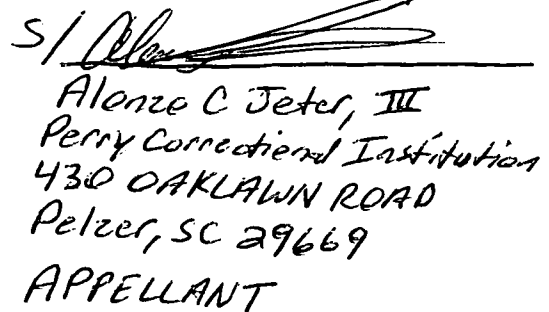 S/ Alonz
Alonzo C Jeter, III
Perry Correctional Institution
430 OAKLAWN ROAD
Pelzer, SC 29669
APPELLANT